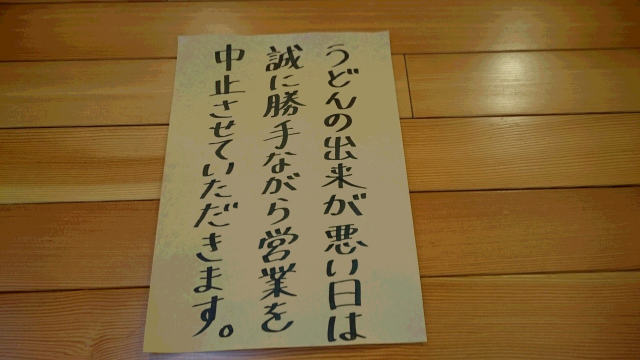 うどんの出来が悪い日は
誠に勝手ながら営業を
中止させていただきます。